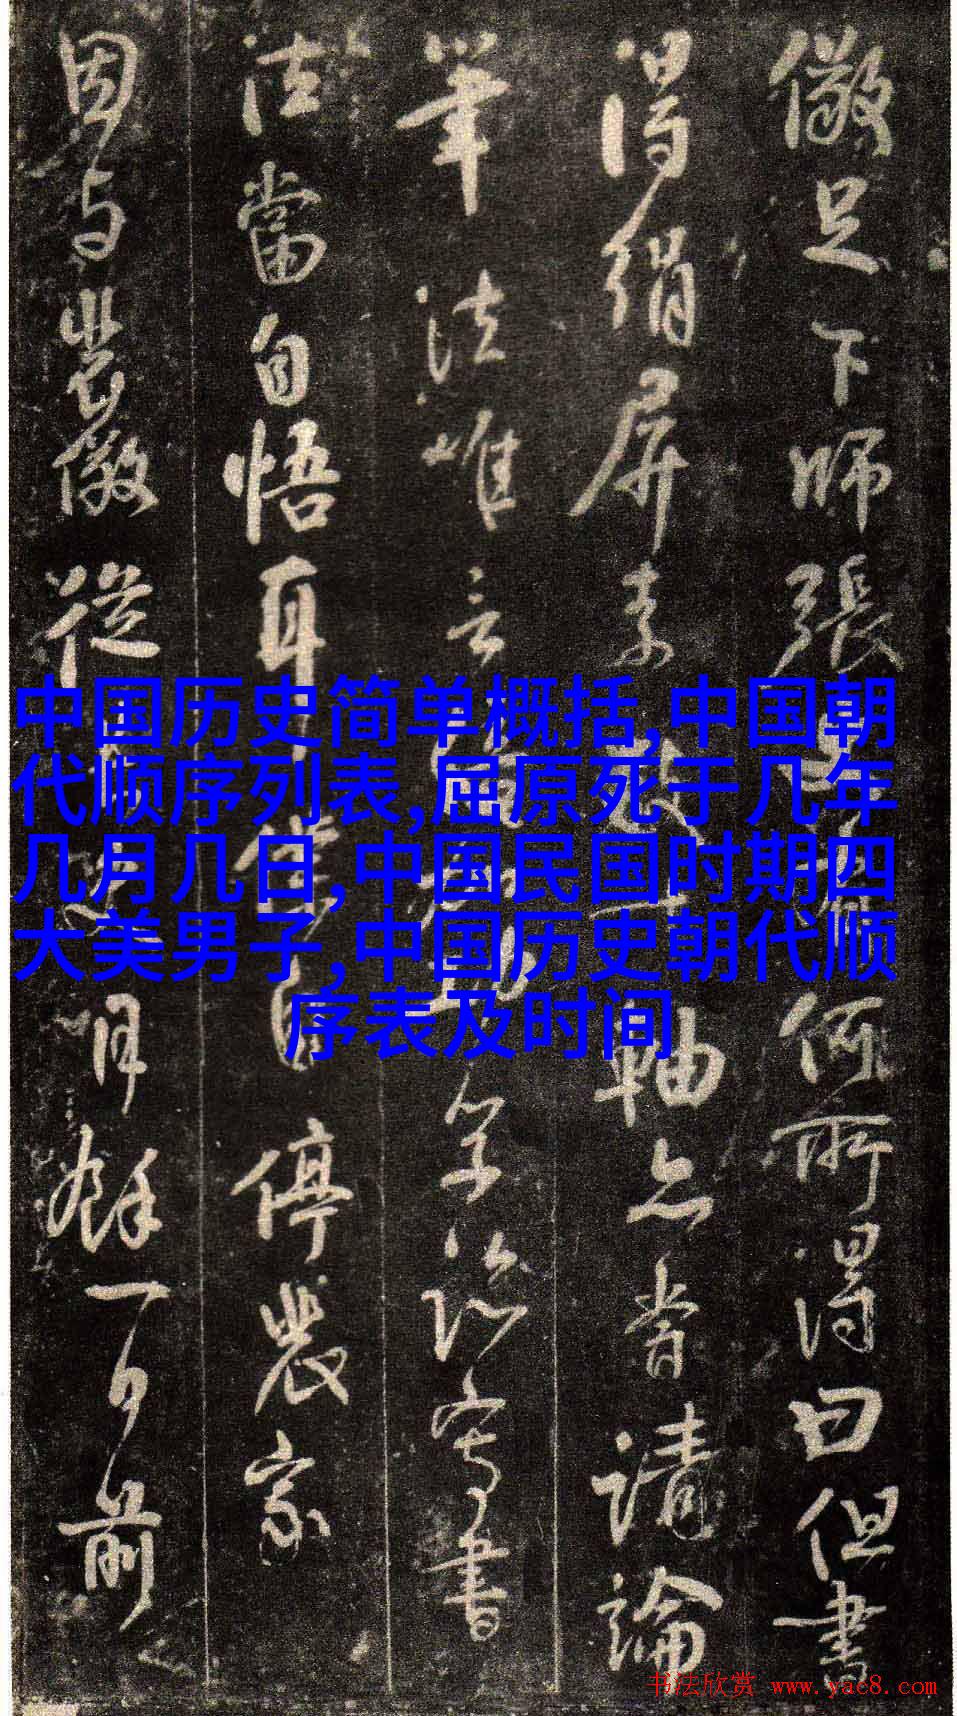 儆足下師張何所得曰但書
得絹屏素數軸亦嘗請論
筆法唯言學臨寫書
法當自悟耳自停裴家
因与裴儆從月餘前
中国历史简单概括,中国朝
代顺序列表,屈原死于几年
几月几日,中国民国时期四
大美男子,中国历史朝代顺
序表及时间
书法欣赏 www.yac8.com